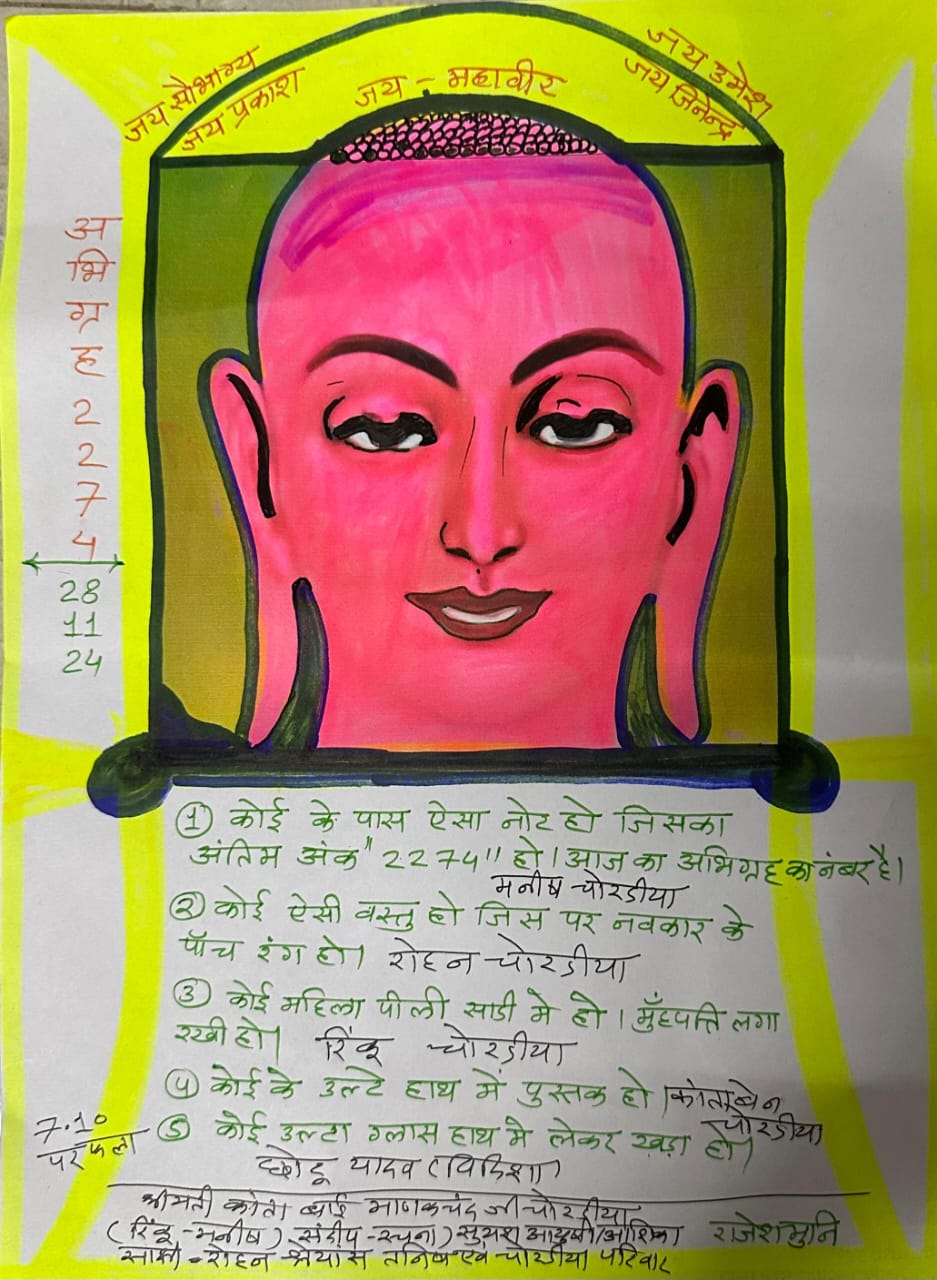 जय सौभाग्य
जय प्रकाश
जय - महावीर
जय उमेश
जय जिनेन्द्र
अ
भि
ग्र
ह
2
2
7
4
28
11
24
① कोई के पास ऐसा नोट हो जिसका
अंतिम अंक "2274" हो। आज का अभिग्रह का नंबर है।
मनीष चोरडीया
② कोई ऐसी वस्तु हो जिस पर नवकार के
पाँच रंग हो। रोहन चोरडीया
③ कोई महिला पीली साडी मे हो। मुँहपत्ति लगा
रखी हो। रिंकू चोरडीया
④ कोई के उल्टे हाथ में पुस्तक हो। कांताबेन
चोरडीया
⑤ कोई उल्टा ग्लास हाथ मे लेकर खड़ा हो।
छोटू यादव (विदिशा)
7.10
पर फला
श्रीमती कांता बाई माणकचंद जी चोरडीया
(रिंकू - मनीष) संदीप - रचना) सुयश आयुषी/आशिका
साक्षी - रोहन श्रेयांस तनिष एवं चोरडीया परिवार
राजेशमुनि